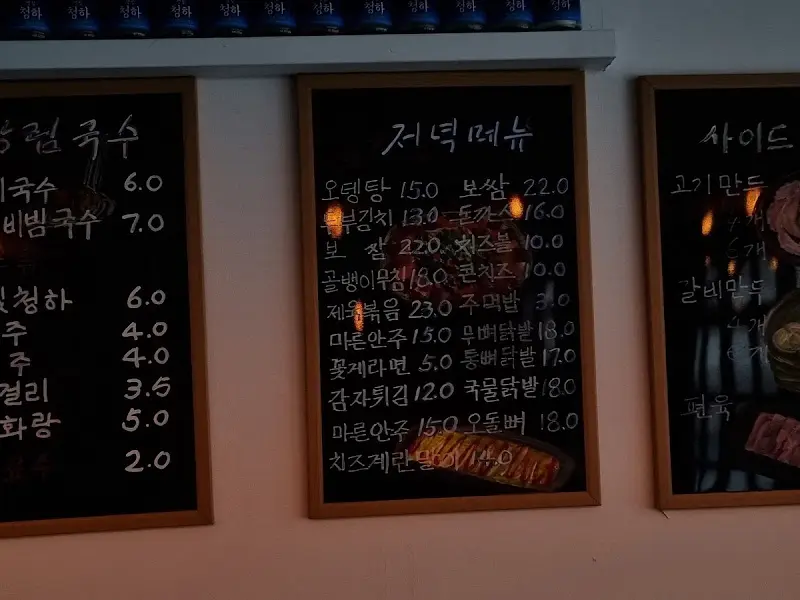 청하 청하 청하 청하 청하 청하 청하 청하 청하 청하 청하
국수
국수 6.0
비빔국수 7.0
청하 6.0
주 4.0
주 4.0
걸리 3.5
화랑 5.0
2.0
저녁메뉴
오뎅탕 15.0 보쌈 22.0
두부김치 13.0 돈까스 16.0
보쌈 22.0 치즈볼 10.0
골뱅이무침 18.0 콘치즈 10.0
제육볶음 23.0 주먹밥 3.0
마른안주 15.0 무뼈닭발 18.0
꽃게라면 5.0 통뼈닭발 17.0
감자튀김 12.0 국물닭발 18.0
마른안주 15.0 오돌뼈 18.0
치즈계란말이 14.0
사이드
고기만두
개
6개
갈비만두
4개
6개
편육